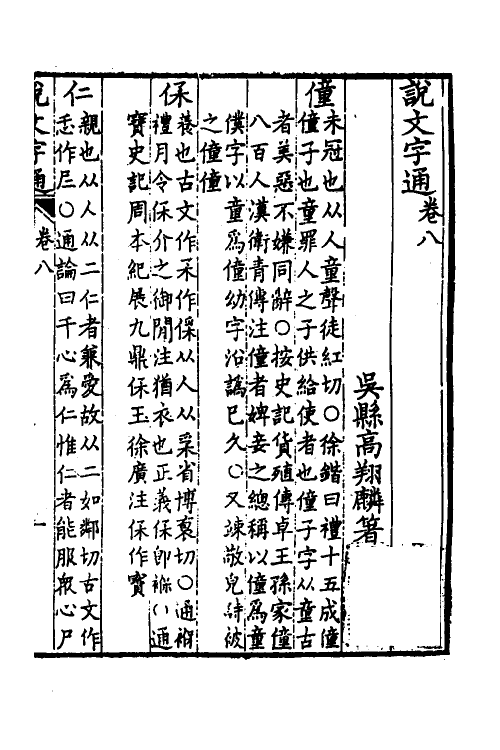 說文字通卷八
吳縣高翔麟著
僮
未冠也从人童聲徒紅切○徐鍇曰禮十五成僮
僮子也童罪人之子供給使者也僮子字从童古
者美惡不嫌同辭○按史記貨殖傳卓王孫家僮
八百人漢衛青傳注僮者婢妾之總稱以僮爲童
僕字以童爲僮幼字沿譌已久○又竦敬皃詩被
之僮僮
保
養也古文作𠈃作保从人从𤓽省博裒切○通褓
禮月令保介之御閒注猶衣也正義保卽褓○通
寶史記周本紀展九鼎保玉徐廣注保作寶
仁
親也从人从二仁者兼愛故从二如鄰切古文作
忎作𡰥○通論曰千心爲仁惟仁者能服衆心尸
說文字通
卷八
一